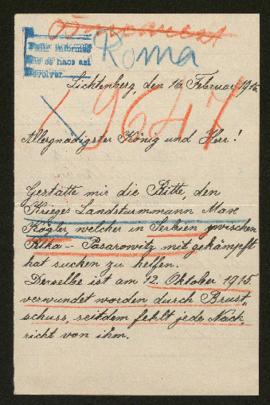 Documents
Roma
19647
Lichtenberg, den 16. Februar 1916.
Allergnädigster König und Herr!
Gestatte mir die Bitte, den
Krieger Landsturmmann Max
Kögler, welcher in Serbien zwischen
– Pasarowitz mitgekämpft
hat suchen zu helfen.
Derselbe ist am 12. Oktober 1915
verwundet worden durch Brust,
schuss, seitdem fehlt jede Nach,
richt von ihm.